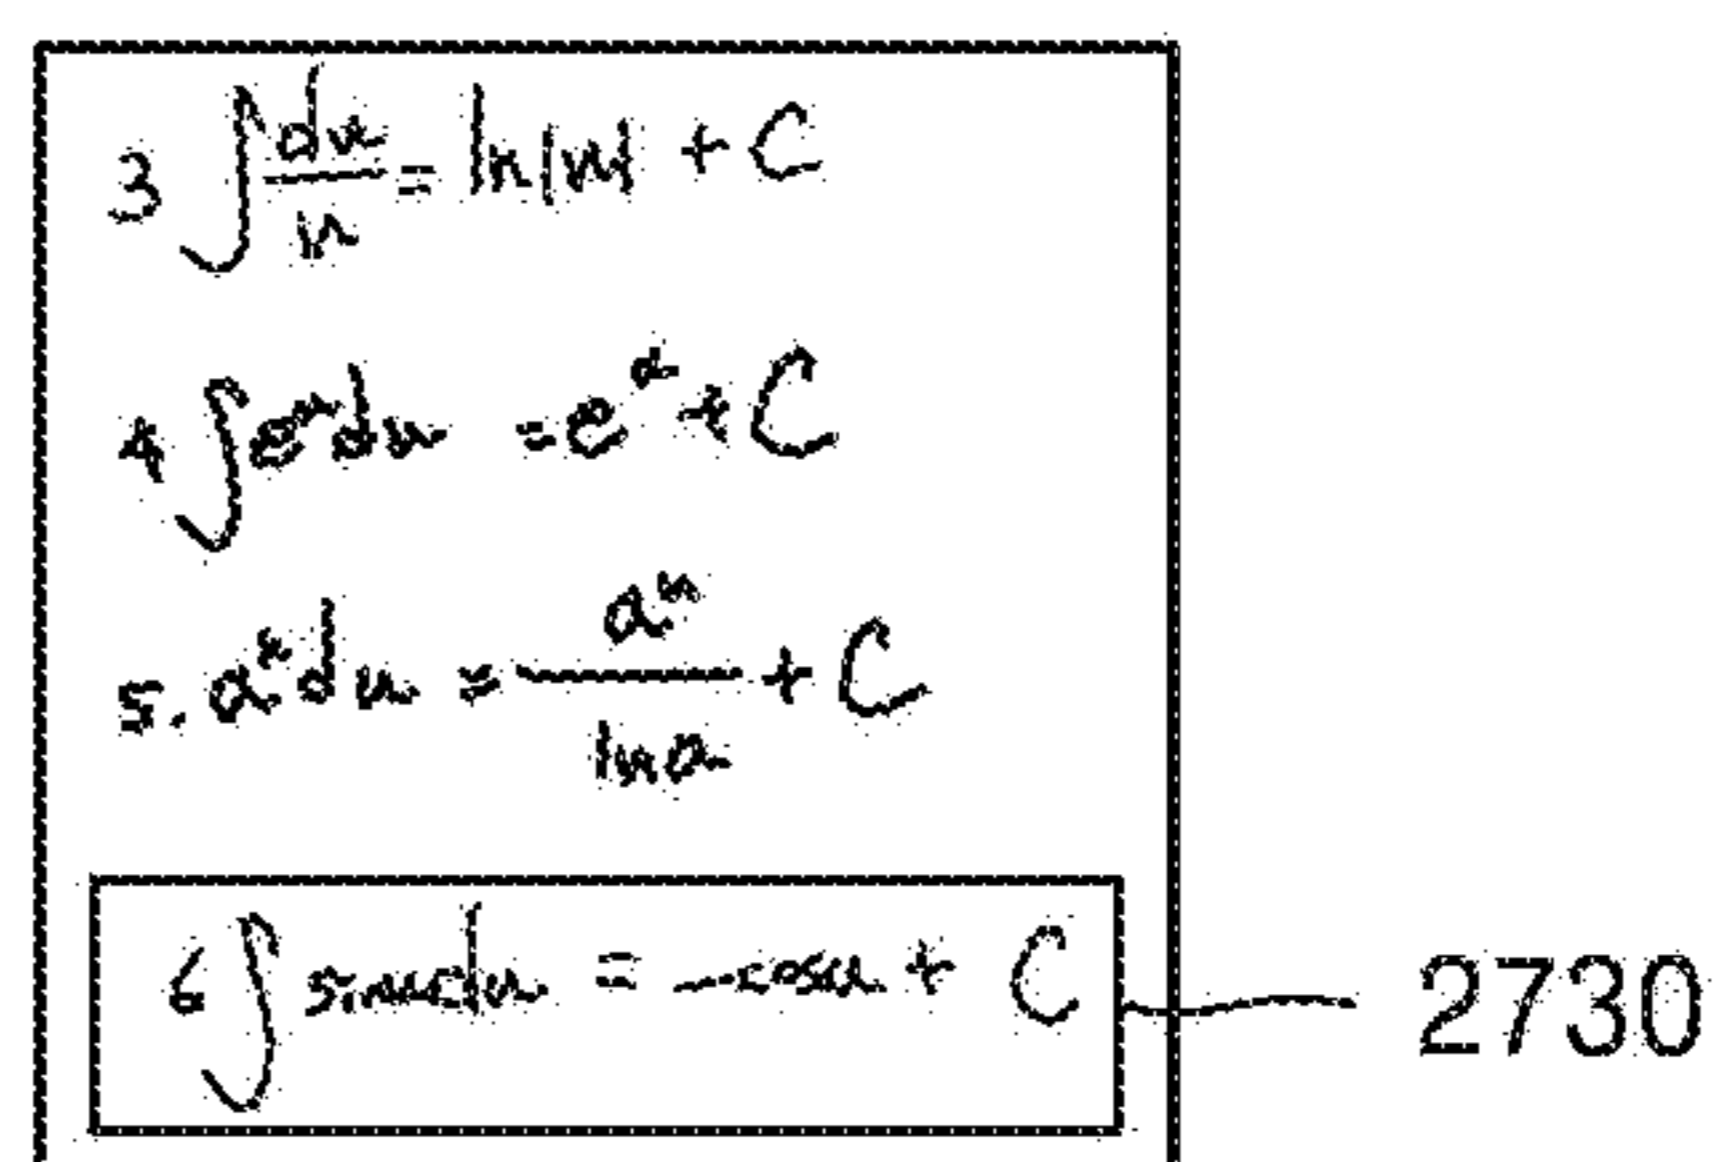 3 ∫ du/u = ln|u| + C
4 ∫ e^u du = e^u + C
5. a^u du = a^u/ln a + C
6 ∫ sin u du = -cos u + C
2730